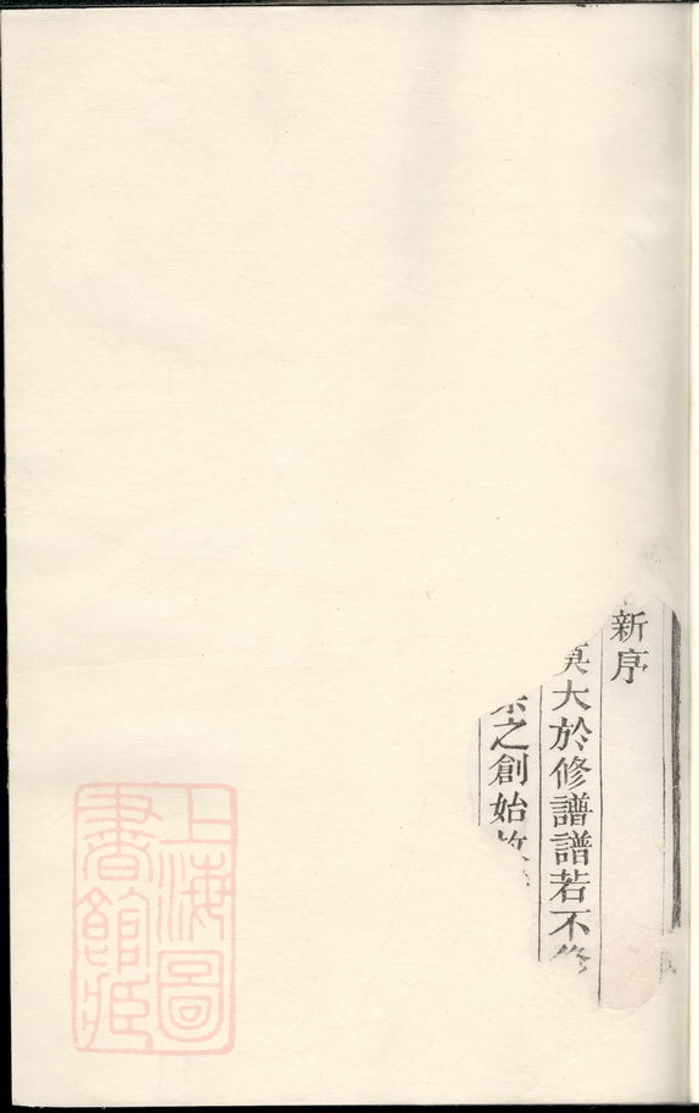 新序
莫大於修譜譜若不修
之創始故
上海圖
書館藏